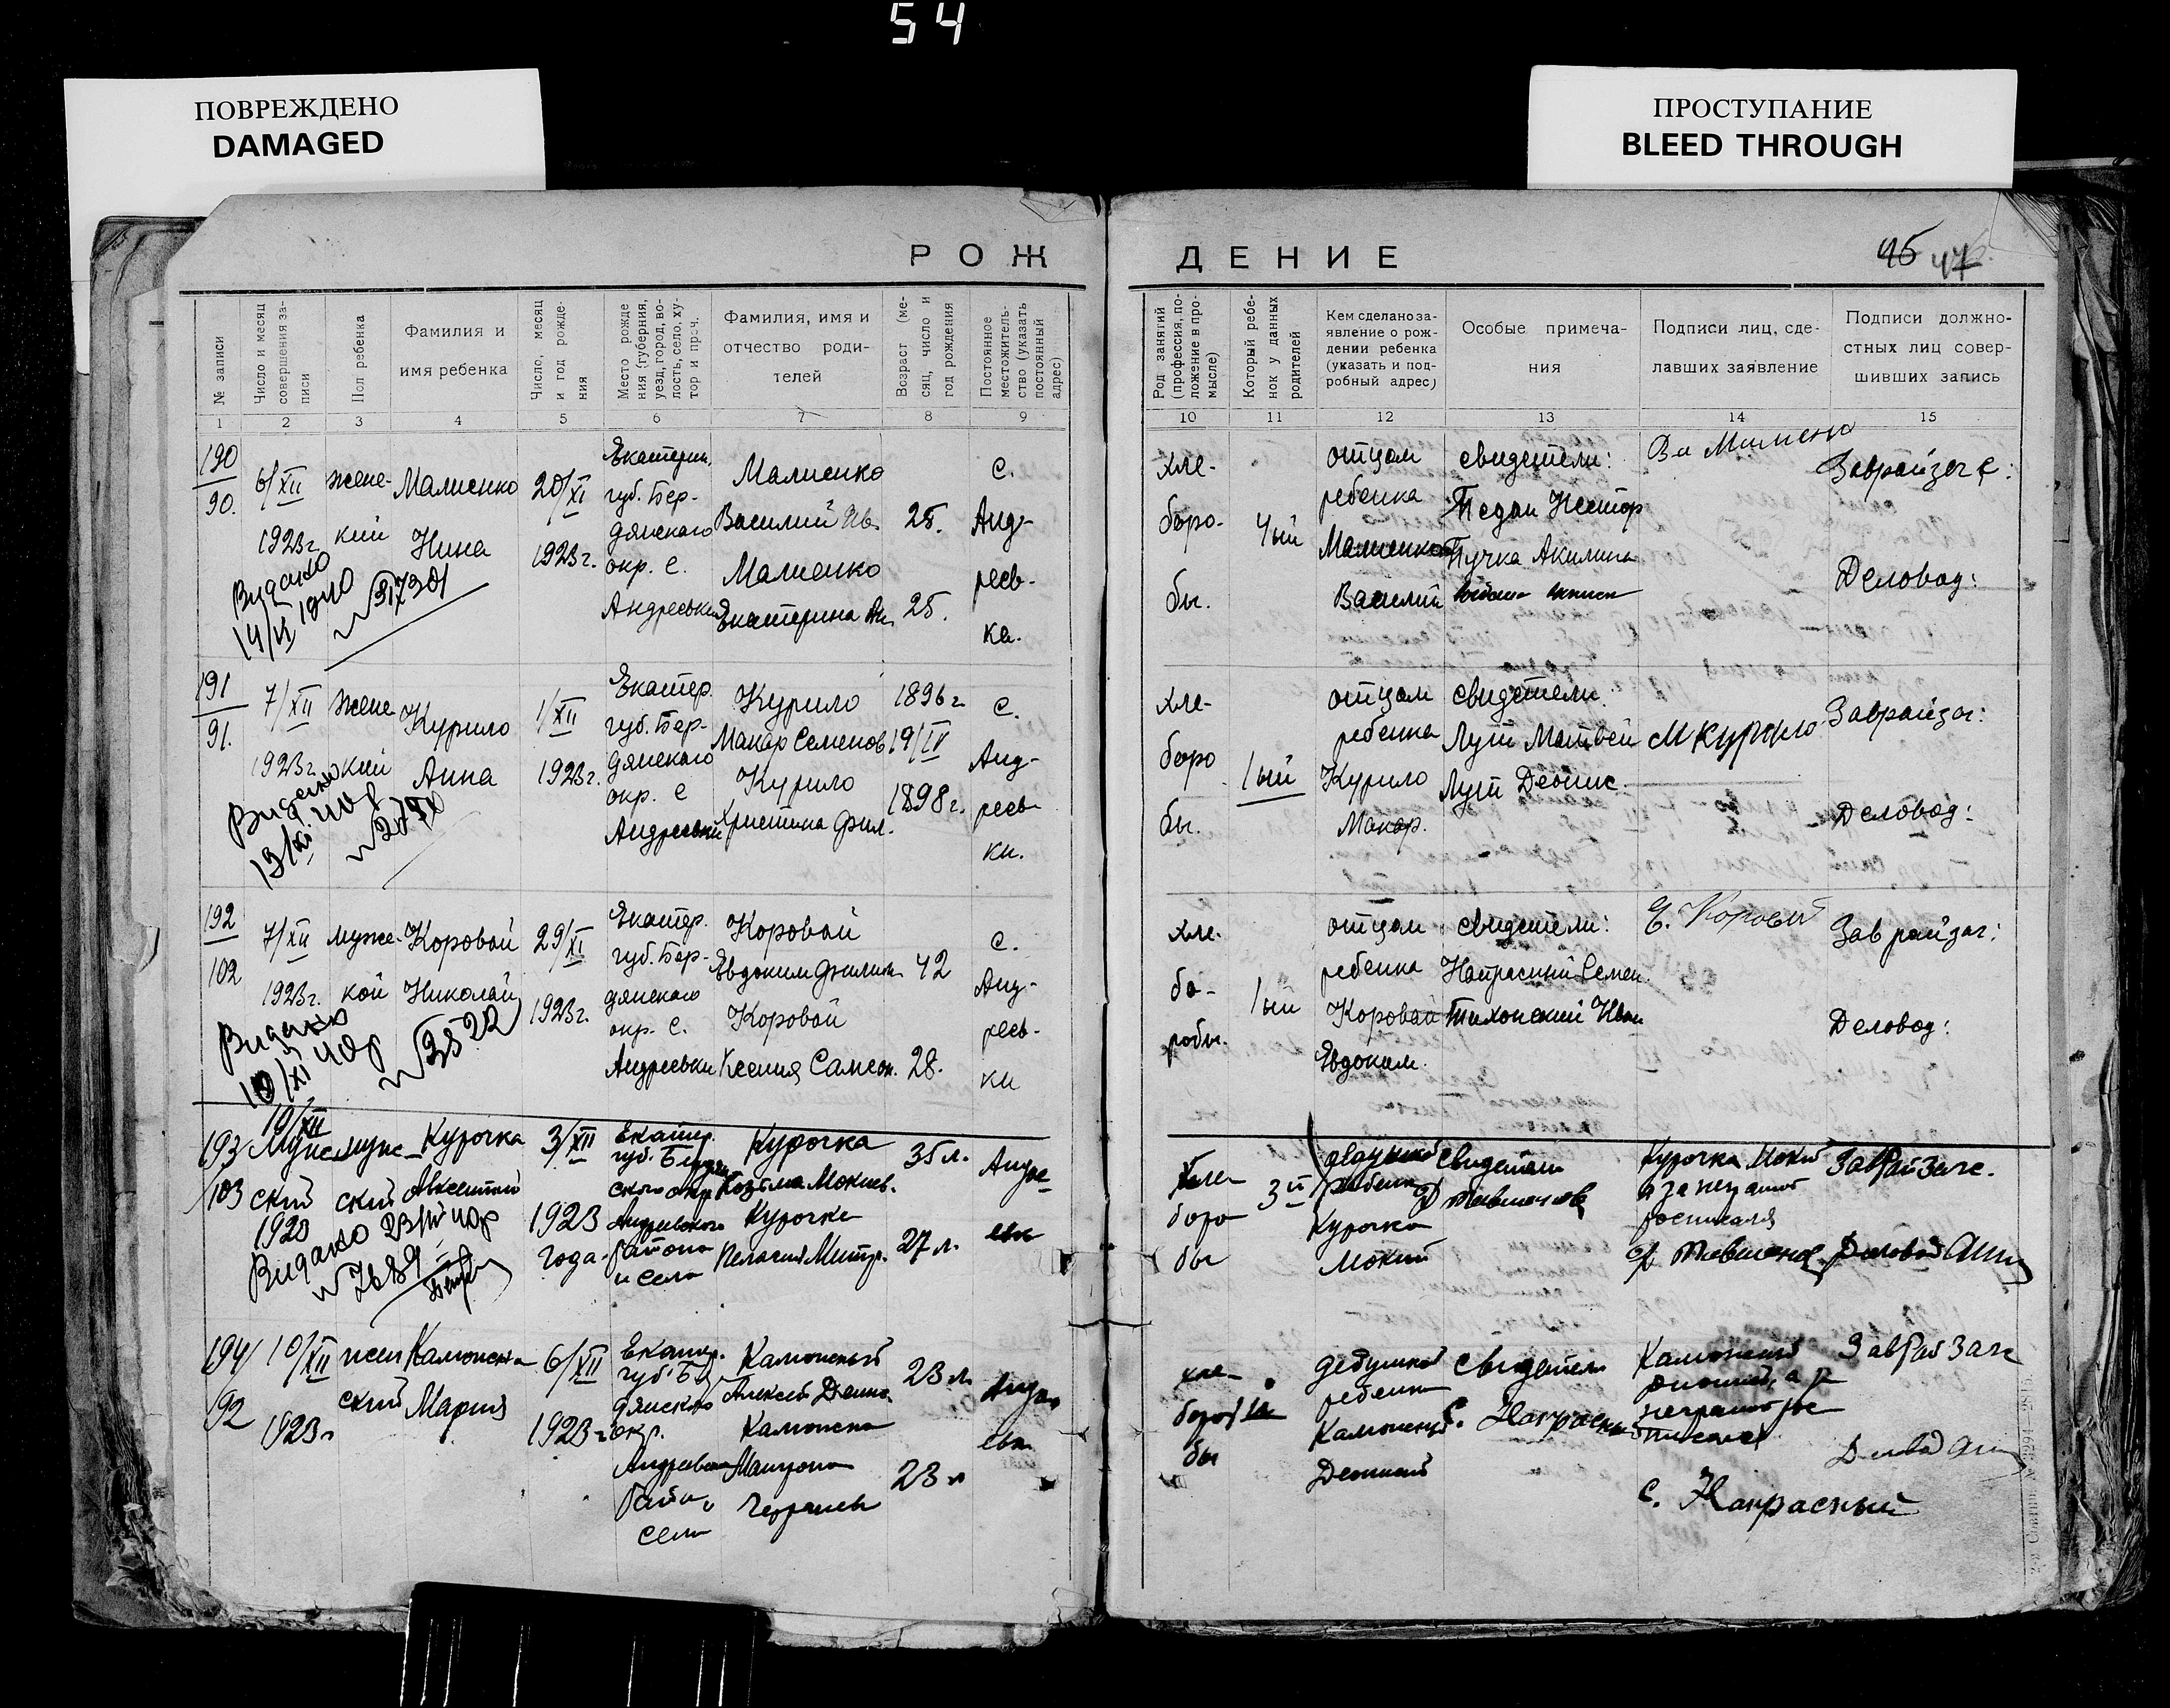 54
ПОВРЕЖДЕНО
DAMAGED
ПРОСТУПАНИЕ
BLEED THROUGH
РОЖ
ДЕНИЕ
46 47
№ записи
Число и месяц совершения записи
Пол ребенка
Фамилия и
имя ребенка
Число, месяц и год рождения
Место рождения (губерния, уезд, город, волость, село, хутор и проч.
Фамилия, имя и
отчество роди-
телей
Возраст (месяц, число и год рождения
Постоянное местожительство (указать постоянный адрес)
Род занятий (профессия, положение в промысле)
Который ребенок у данных родителей
Кем сделано за-
явление о рож-
дении ребенка
(указать и под-
робный адрес)
Особые примеча-
ния
Подписи лиц, сде-
лавших заявление
Подписи должно-
стных лиц совер-
шивших запись
1 2 3 4 5 6 7 8 9 10 11 12 13 14 15
190
90.
6/XII
1923г.
жене-
кий
Малиенко
Нина
20/XI
1923г.
Екатерин.
губ. Бер-
дянскаго
окр. с.
Андреевки
Малиенко
Василий Ив.
Малиенко
Екатерина
25.
25.
с.
Анд-
реев-
ка.
хле-
боро-
бы.
4ый
отцом
ребенка
Малиенко
Василий
свидетели:
Педан Нестор
Пучка Акилина
Заврайзаг
Деловод:
Видано
14/VI 1940
№ 317301
191
91.
7/XII
1923г.
жене
кий
Курило
Анна
1/XII
1923г.
Екатер.
губ. Бер-
дянскаго
окр. с
Андреевки
Курило
Макар Семенов
Курило
Христина Фил.
1896г.
19/IV
1898г.
с.
Анд-
реев-
ки.
хле-
боро
бы.
1ый
отцом
ребенка
Курило
Макар.
свидетели:
Лут Матвей
Лут Денис.
М Курило
Заврайзаг:
Деловод:
Видано
13/XI 40р
192
102
7/XII
1923г.
муже-
кой
Коровай
Николай
29/XI
1923г.
Екатер.
губ. Бер-
дянскаго
окр. с.
Андреевки
Коровай
Евдоким Филип.
Коровай
Ксения Самсон.
42
28.
с.
Анд-
реев-
ки
хле-
бо-
робы.
1ый
отцом
ребенка
Коровай
Евдоким.
свидетели:
Напрасный Семен
Тихонский Иван
Е. Коровай
Заврайзаг:
Деловод:
Видано
10/XI 40р
№ 3522
193
103
10/XII
1923
муж-
ский
Курочка
Авксентий
3/XII
1923
года
Екатер.
губ. Бердян
ского окр.
Андреевского
района
и села
Курочка
Козьма Мокиев.
Курочка
Пелагия Митр.
35 л.
27 л.
Андре-
евка
Хле-
боро
бы
3й
дедушкой
ребенка
Курочка
Мокий
Свидетели
Курочка Мокий
а за неграмот
росписался
ЗавРайЗагс.
Деловод
Видано 23/IV 40р
№ 7689
194
92
10/XII
1923г
жен
ский
Камонская
Мария
6/XII
1923г
Екатер.
губ. Бер
дянского
окр.
Андреевского
Района
села
Камонский
Алексей Дени.
Камонская
Матрона
23 л.
23 л
Андре
евка
хле-
боро
бы
дедушкой
ребенка
Камонский
Дениший
Свидетели
С. Напрасный
ЗавРайЗагс
Деловод
С. Напрасный